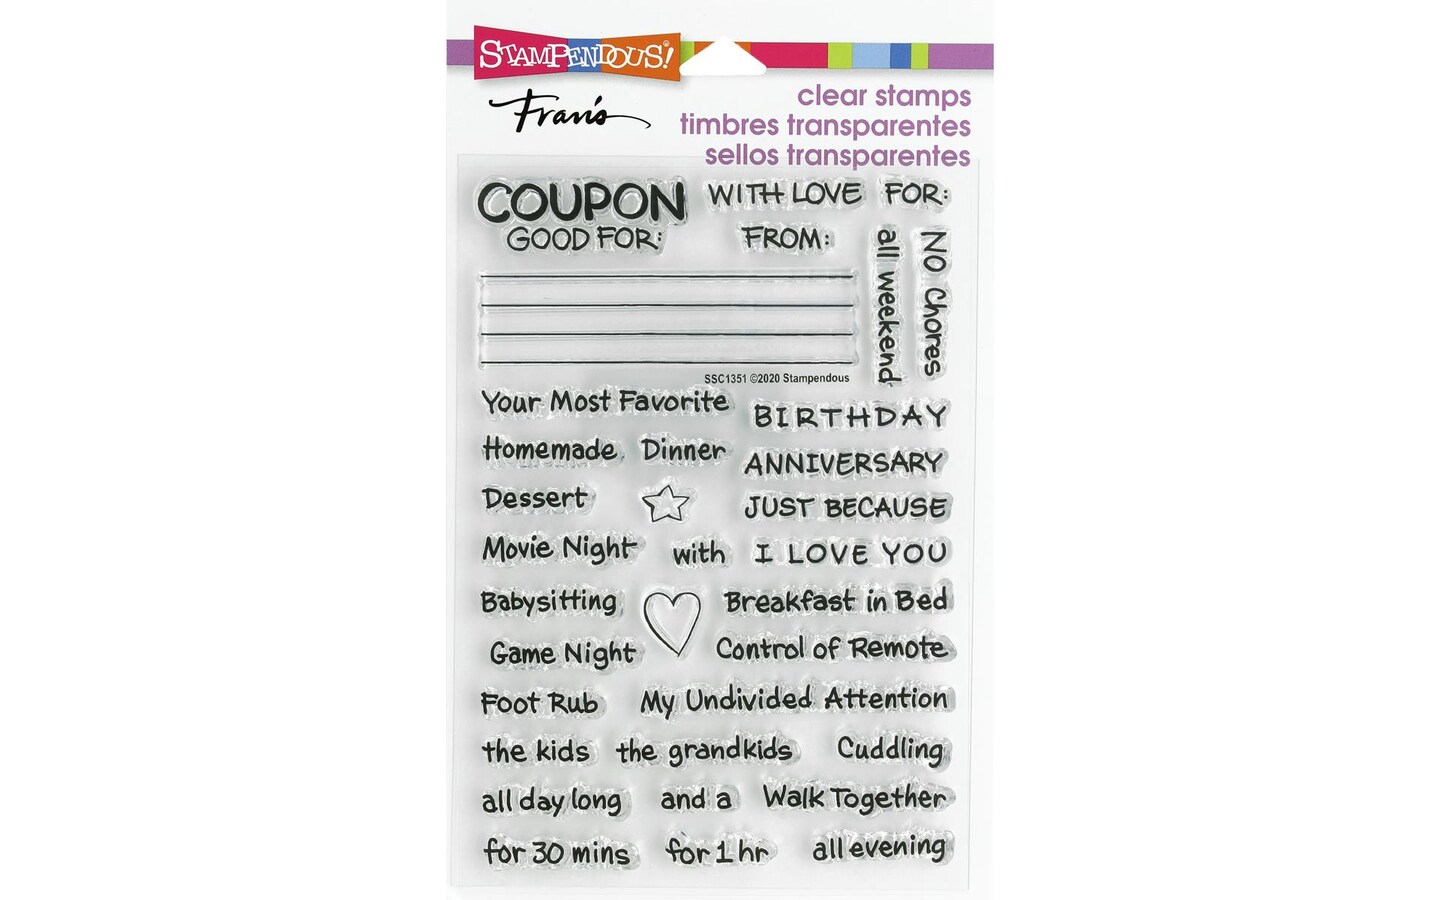 STAMPENDOUS!®
Fran's
clear stamps
timbres transparentes
sellos transparentes
COUPON
GOOD FOR:
WITH LOVE
FOR:
FROM:
all weekend
NO Chores
SSC1351 ©2020 Stampendous
Your Most Favorite
BIRTHDAY
Homemade
Dinner
ANNIVERSARY
Dessert
JUST BECAUSE
Movie Night
with
I LOVE YOU
Babysitting
Breakfast in Bed
Game Night
Control of Remote
Foot Rub
My Undivided Attention
the kids
the grandkids
Cuddling
all day long
and a
Walk Together
for 30 mins
for 1 hr
all evening